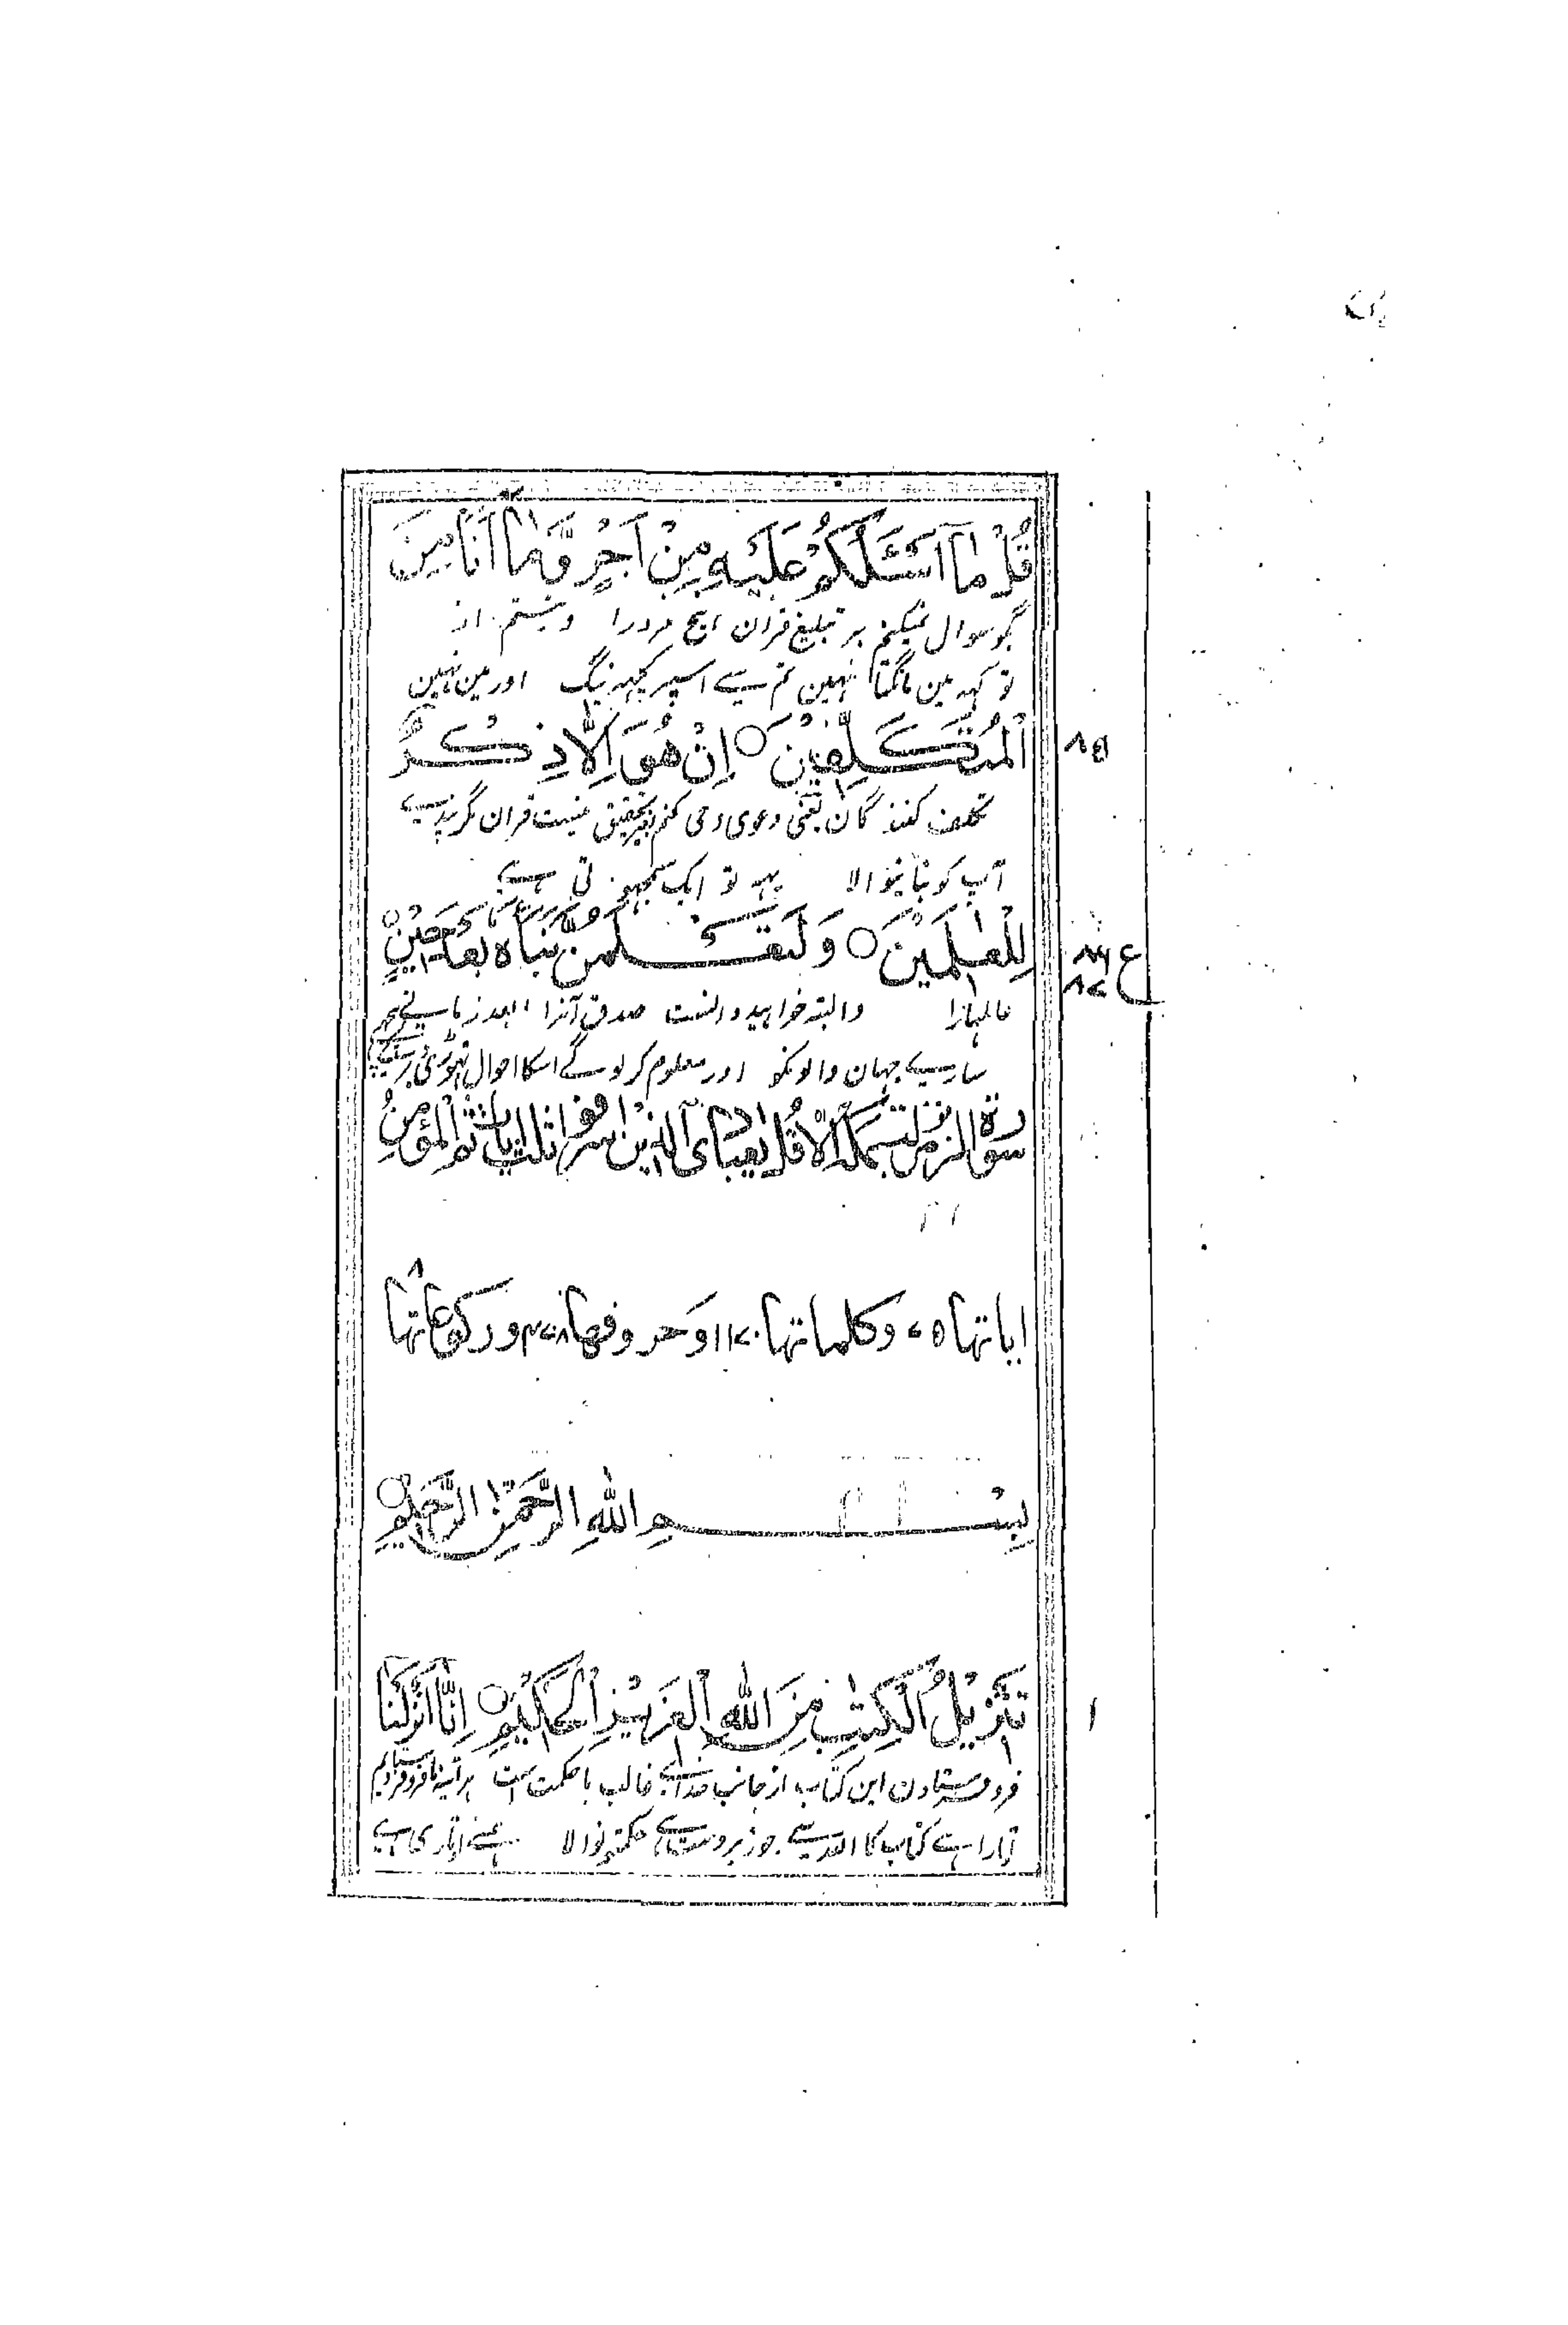 قُلْ مَآ اَسْئَلُكُمْ عَلَيْهِ مِنْ اَجْرٍ وَّمَآ اَنَا مِنَ
بگو سوال نمیکنم بر تبلیغ قران هیچ مزدرا و نیستم از
تو کہہ مین مانگتا نہین تم سے اسپر کچہہ نیگ اور مین نہین
الْمُتَكَلِّفِيْنَ ○ اِنْ هُوَ اِلَّا ذِكْرٌ
۸۶
تکلف کنندگان یعنی دعوی وحی کنم بغیر تحقیق نیست قران مگر پندے
آپ کو بنانیوالا یہہ تو ایک سمجہوتی ہے
لِلْعٰلَمِيْنَ ○ وَلَتَعْلَمُنَّ نَبَاَهٗ بَعْدَ حِيْنٍ ○
۸۷ ع
عالمہارا والبتہ خواہید دانست صدق آنرا بعد زمانے
سارے جہان والونکو اور معلوم کر لوگے اسکا احوال تہوڑی
سورة الزمر نزلت بمكة الا قل يعبادى الذين اسرفوا ثلث ايات ثم المؤمن
اياتها ۷۵ وكلماتها ۱۱۷۰ وحروفها ورکوعاتها ۸
بِسْمِ اللهِ الرَّحْمٰنِ الرَّحِيْمِ ○
تَنْزِيْلُ الْكِتٰبِ مِنَ اللهِ الْعَزِيْزِ الْحَكِيْمِ ○ اِنَّآ اَنْزَلْنَآ
۱
فرو فرستادن این کتاب از جانب خداے غالب با حکمت است ہر آئینہ ما فرو فرستادیم
اتارا ہے کتاب کا اللہ سے جو زبردست ہے حکمتونوالا ہمنے اتاری ہے